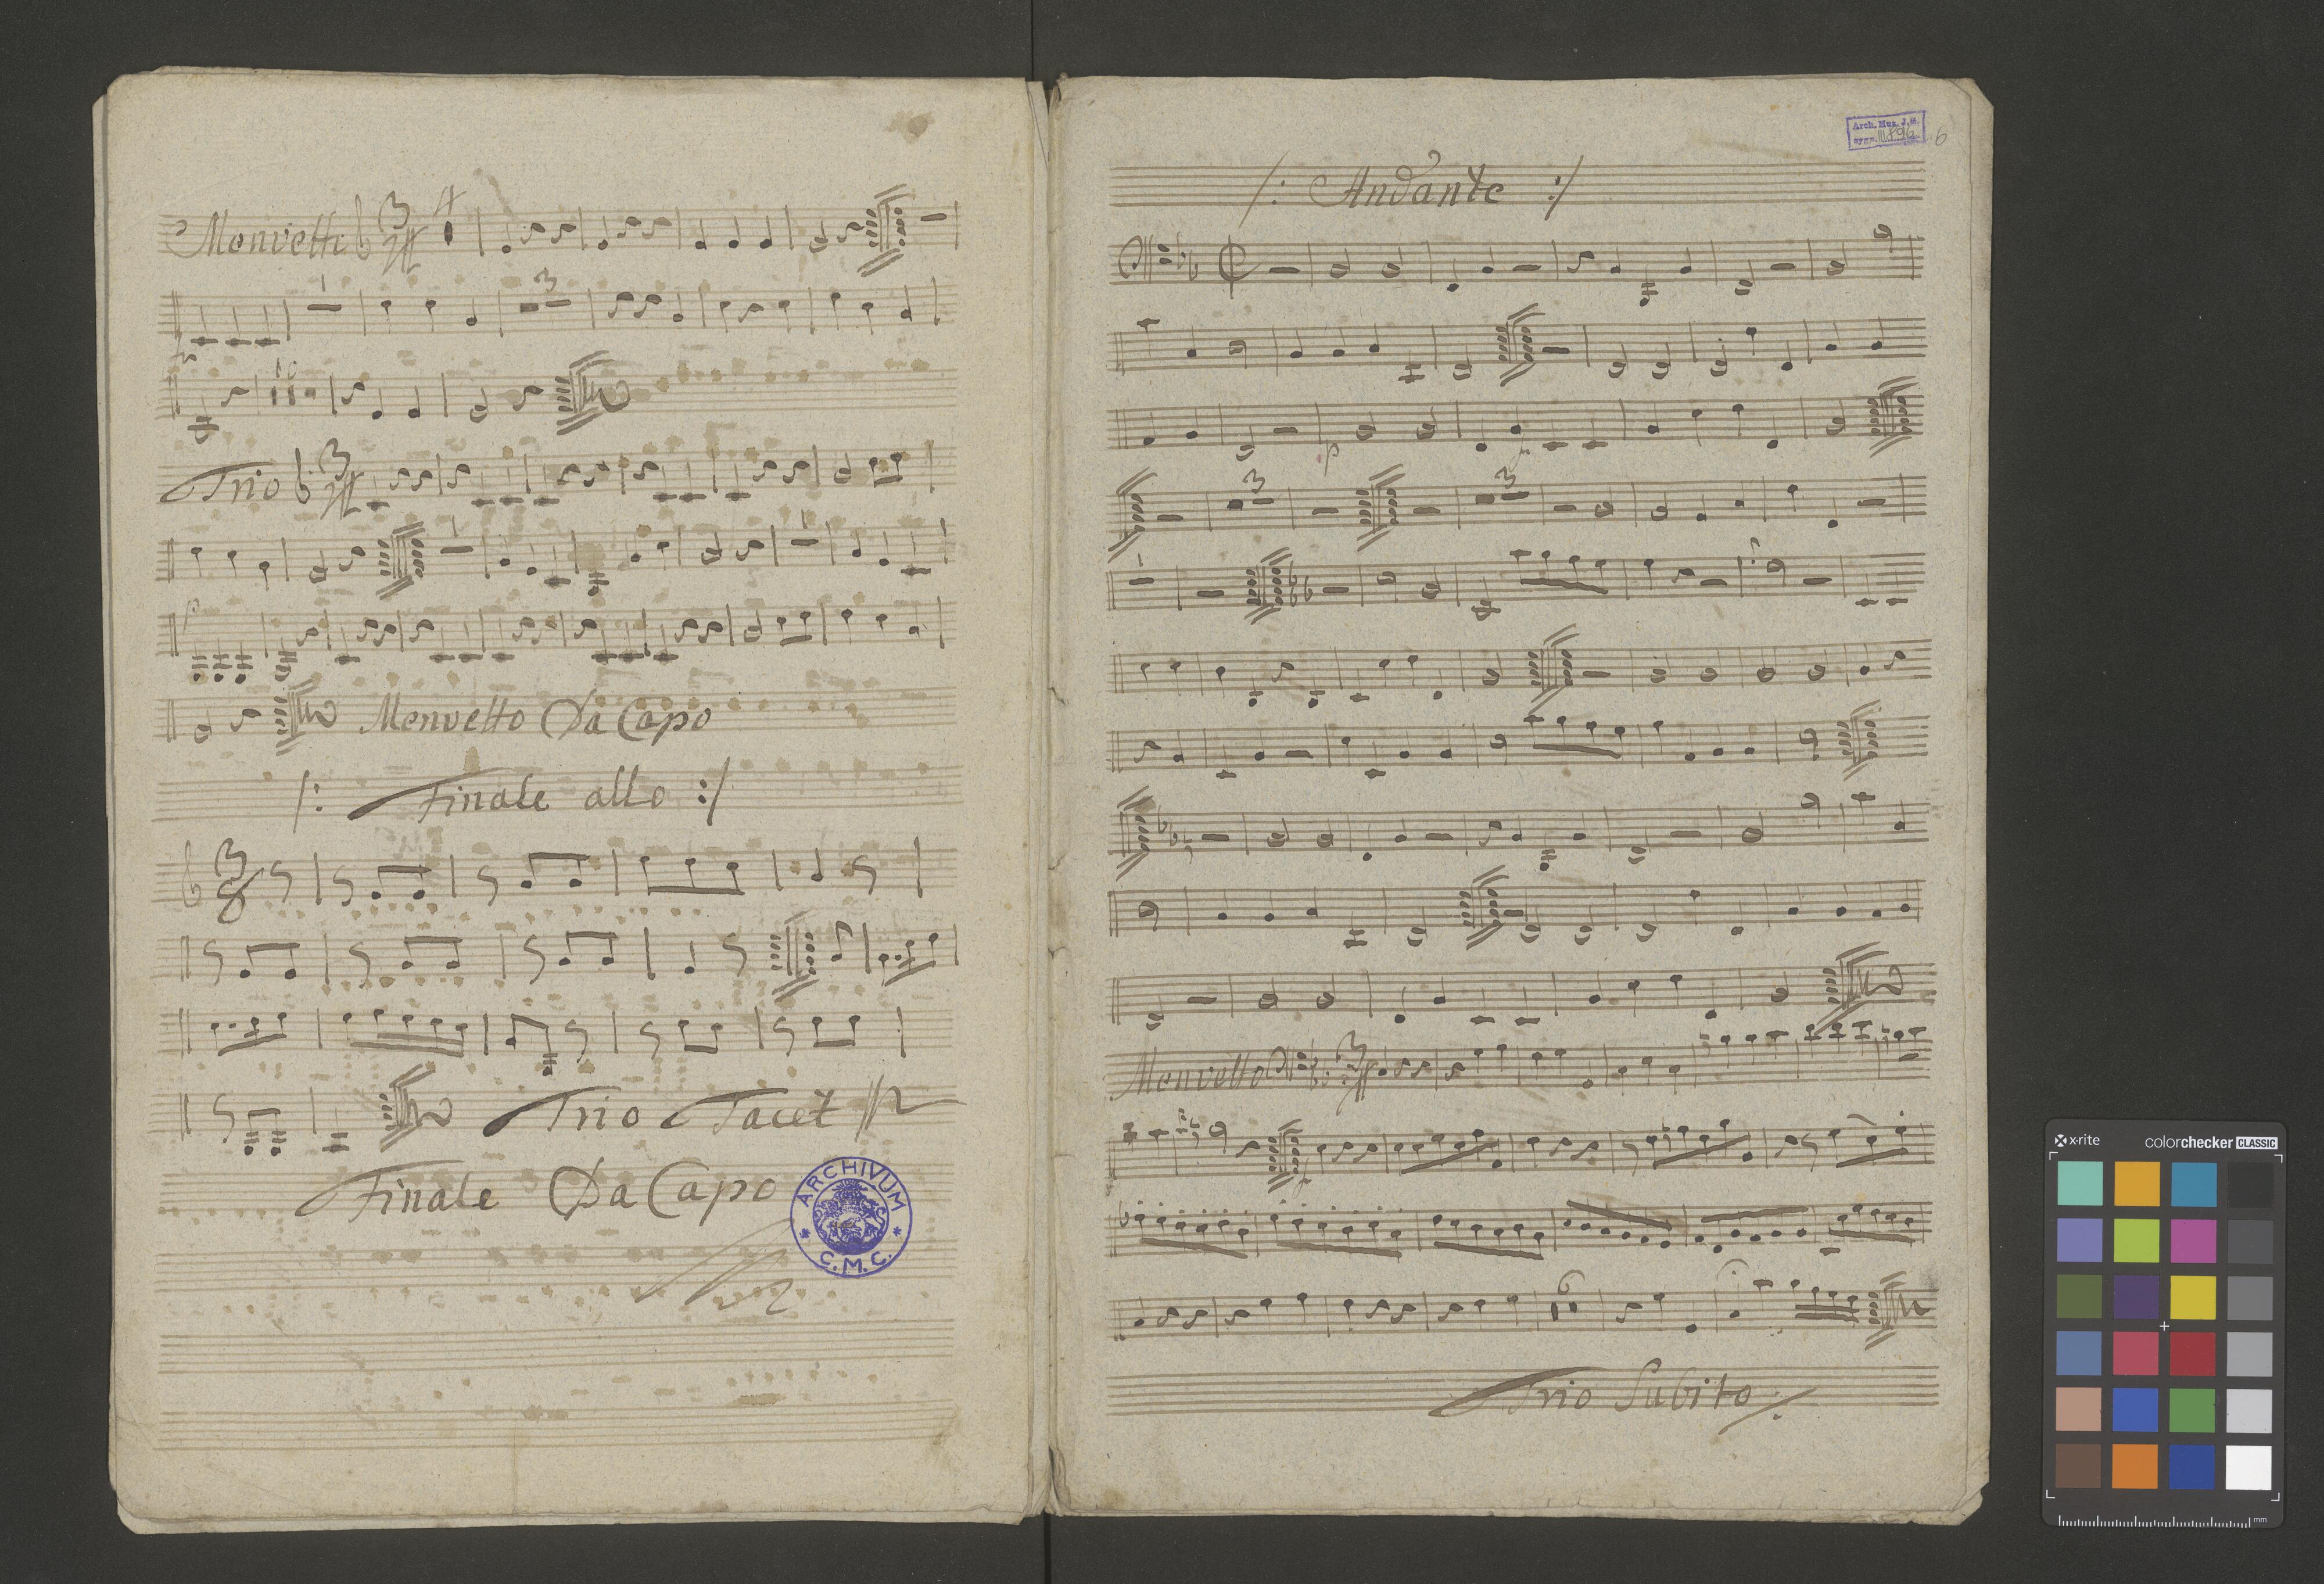 Menvetti 3 4
1 3
10
Trio 3
1 1
Menvetto Da Capo
/: Finale allo :/
3 8
Trio Tacet
Finale Da Capo
ARCHIVUM
C.M.C.
Arch. Muz. J.G.
sygn. III 896
6
/: Andante :/
p
3 3
1
Menvetto 3
6
Trio Subito
x-rite colorchecker CLASSIC
mm